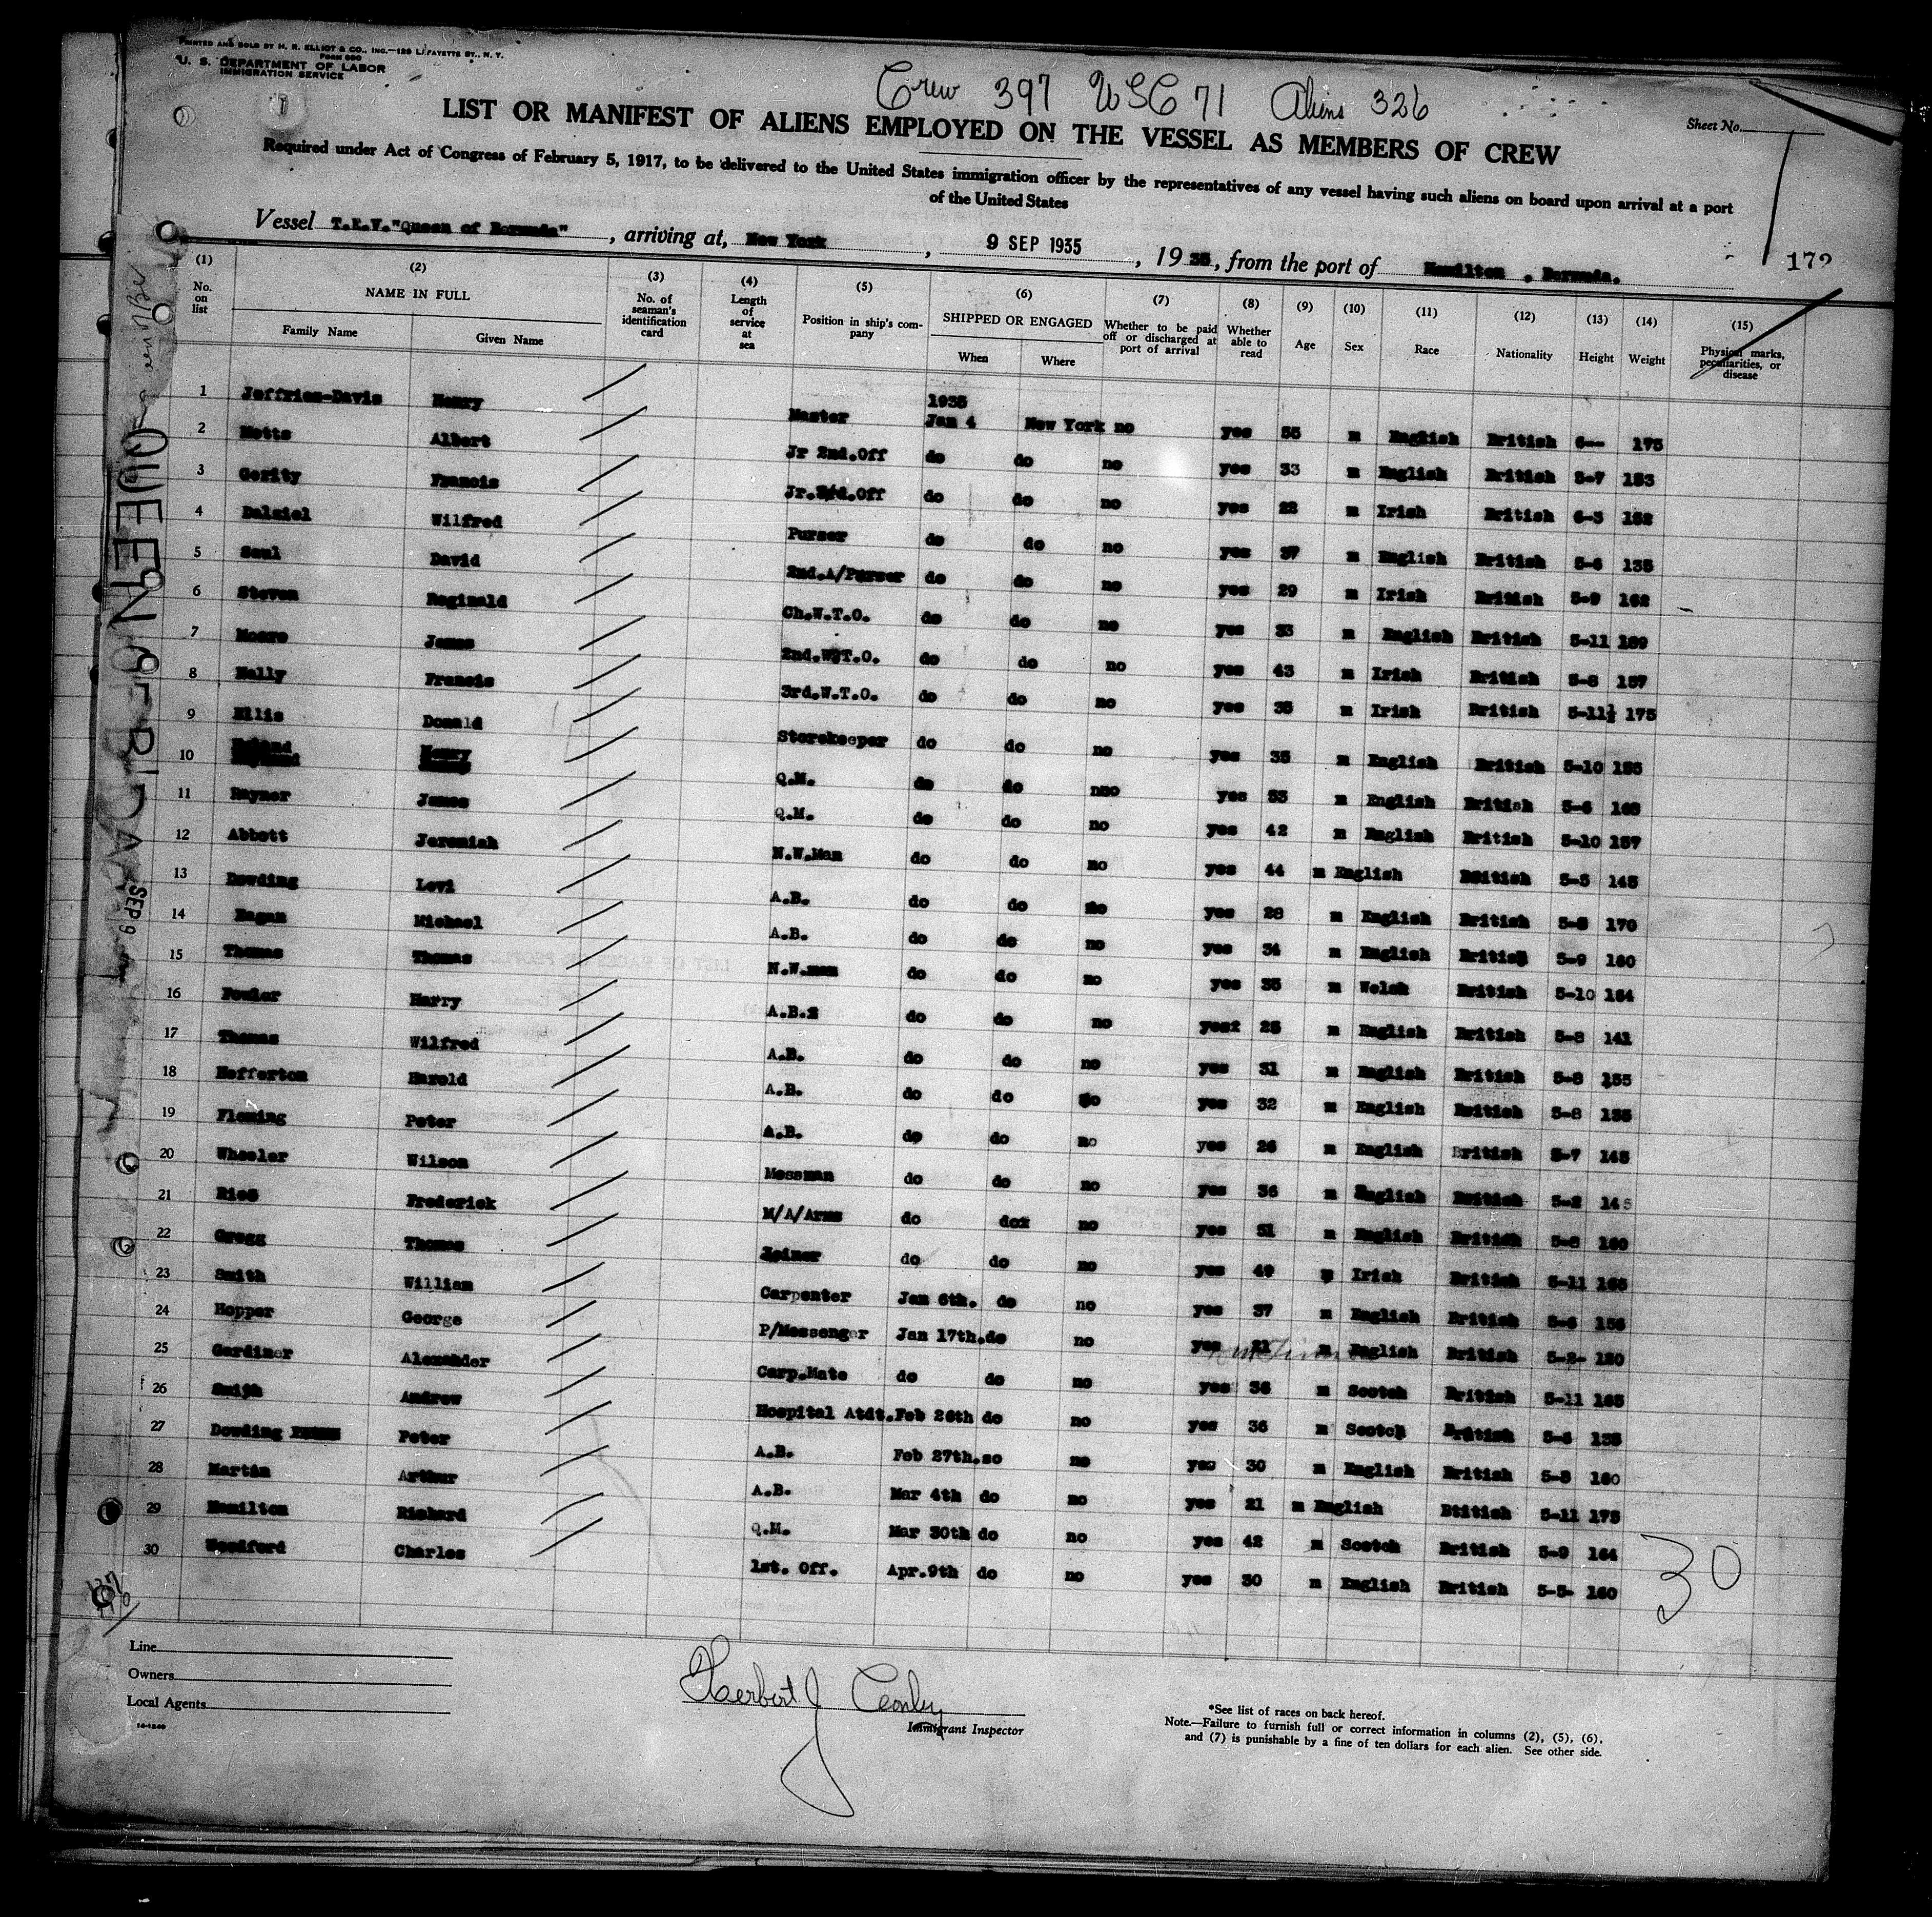 PRINTED AND SOLD BY H. R. ELLIOT & CO., INC.—129 LAFAYETTE ST., N. Y.
U. S. DEPARTMENT OF LABOR
IMMIGRATION SERVICE
Crew 397 USC 71 Aliens 326
Sheet No.
LIST OR MANIFEST OF ALIENS EMPLOYED ON THE VESSEL AS MEMBERS OF CREW
Required under Act of Congress of February 5, 1917, to be delivered to the United States immigration officer by the representatives of any vessel having such aliens on board upon arrival at a port
of the United States
Vessel T.E.V."Queen of Bermuda", arriving at, New York, 9 SEP 1935, 1935, from the port of Hamilton, Bermuda.
172
(1) No. on list (2) NAME IN FULL Family Name Given Name (3) No. of seaman's identification card (4) Length of service at sea (5) Position in ship's company (6) SHIPPED OR ENGAGED When Where (7) Whether to be paid off or discharged at port of arrival (8) Whether able to read (9) Age (10) Sex (11) Race (12) Nationality (13) Height (14) Weight (15) Physical marks, peculiarities, or disease
1 Jeffries-Davis Henry Master 1935 Jan 4 New York no yes 55 m English British 6-- 175
2 Metts Albert Jr 2nd.Off do do no yes 33 m English British 5-7 153
3 Gerity Francis Jr. Off do do no yes 22 m Irish British 6-3 182
4 Dalziel Wilfred Purser do do no yes 37 m English British 5-6 135
5 Saul David 2nd.A/Purser do do no yes 29 m Irish British 5-9 162
6 Steven Reginald Ch.W.T.O. do do no yes 33 m English British 5-11 189
7 Moore James 2nd.W.T.O. do do no yes 43 m Irish British 5-8 157
8 Nally Francis 3rd.W.T.O. do do no yes 35 m Irish British 5-11½ 175
9 Ellis Donald Storekeeper do do no yes 35 m English British 5-10 155
10 Henry Q.M. do do nno yes 53 m English British 5-6 165
11 Rayner James Q.M. do do no yes 42 m English British 5-10 157
12 Abbott Jeremiah N.W.Man do do no yes 44 m English British 5-5 145
13 Dowding Levi A.B. do do no yes 28 m English British 5-8 170
14 Eagan Michael A.B. do do no yes 34 m English British 5-9 160
15 Thomas Thomas N.W.man do do no yes 35 m Welsh British 5-10 164
16 Fowler Harry A.B. do do no yes 25 m English British 5-8 141
17 Thomas Wilfred A.B. do do no yes 31 m English British 5-8 155
18 Hefferton Harold A.B. do do no yes 32 m English British 5-8 155
19 Fleming Peter A.B. do do no yes 26 m English British 5-7 145
20 Wheeler Wilson Messman do do no yes 36 m English British 5-2 145
21 Frederick M/A/Arms do do no yes 51 m English British 5-8 160
22 Gregg Thomas do do no yes 49 m Irish British 5-11 165
23 Smith William Carpenter Jan 6th. do no yes 37 m English British 5-6 156
24 Hopper George P/Messenger Jan 17th.do no yes 21 m English British 5-2- 120
25 Gardiner Alexander Carp.Mate do do no yes 36 m Scotch British 5-11 165
26 Andrew Hospital Atdt.Feb 26th do no yes 36 m Scotch British 5-6 135
27 Dowding Peter A.B. Feb 27th.so no yes 30 m English British 5-8 160
28 Martin Arthur A.B. Mar 4th do no yes 21 m English Btitish 5-11 175
29 Hamilton Richard Q.M. Mar 30th do no yes 42 m Scotch British 5-9 164
30 Woodford Charles 1st. Off. Apr.9th do no yes 30 m English British 5-5- 160
30
QUEEN OF BERMUDA
SEP 9
Line
Owners
Local Agents
Herbert J
Immigrant Inspector
*See list of races on back hereof.
Note.—Failure to furnish full or correct information in columns (2), (5), (6),
and (7) is punishable by a fine of ten dollars for each alien. See other side.